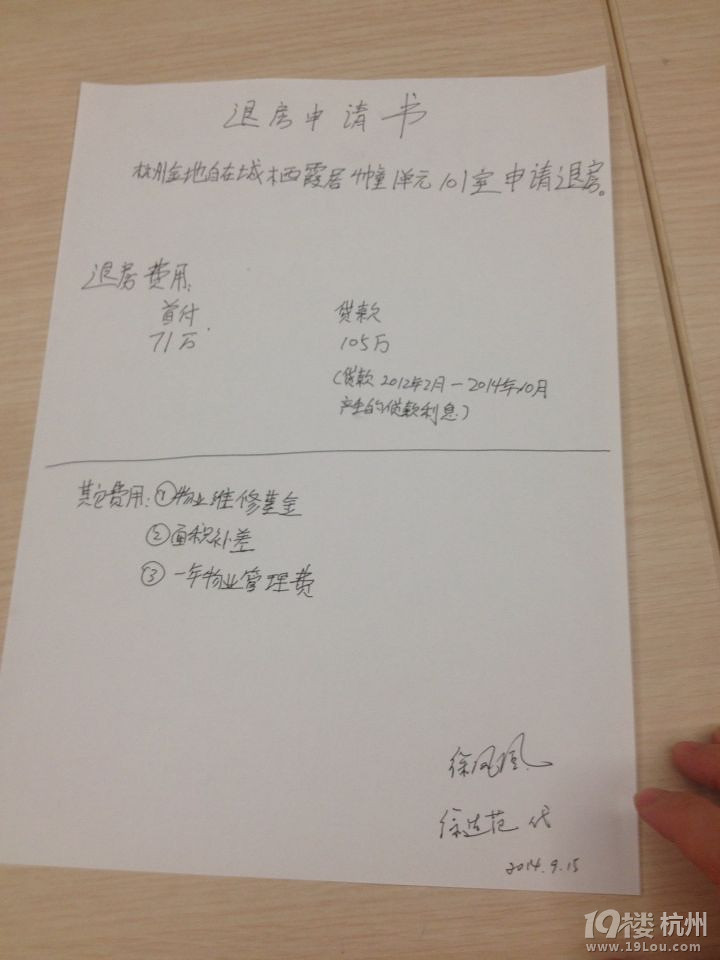 退房申请书
杭州金地自在城栖霞居4幢1单元101室申请退房。
退房费用:
首付 贷款
71万. 105万
(贷款2012年2月-2014年10月
产生的贷款利息)
其它费用:①物业维修基金
②面积补差
③一年物业管理费
徐凤
徐达范 代
2014.9.15
19楼 杭州
www.19Lou.com